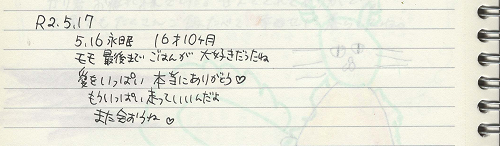 R2.5.17
5.16 永眠 16才10ヶ月
モモ 最後まで ごはんが 大好きだったね
愛をいっぱい 本当にありがとう♡
もういっぱい走っていいんだよ
また会おうね ♡